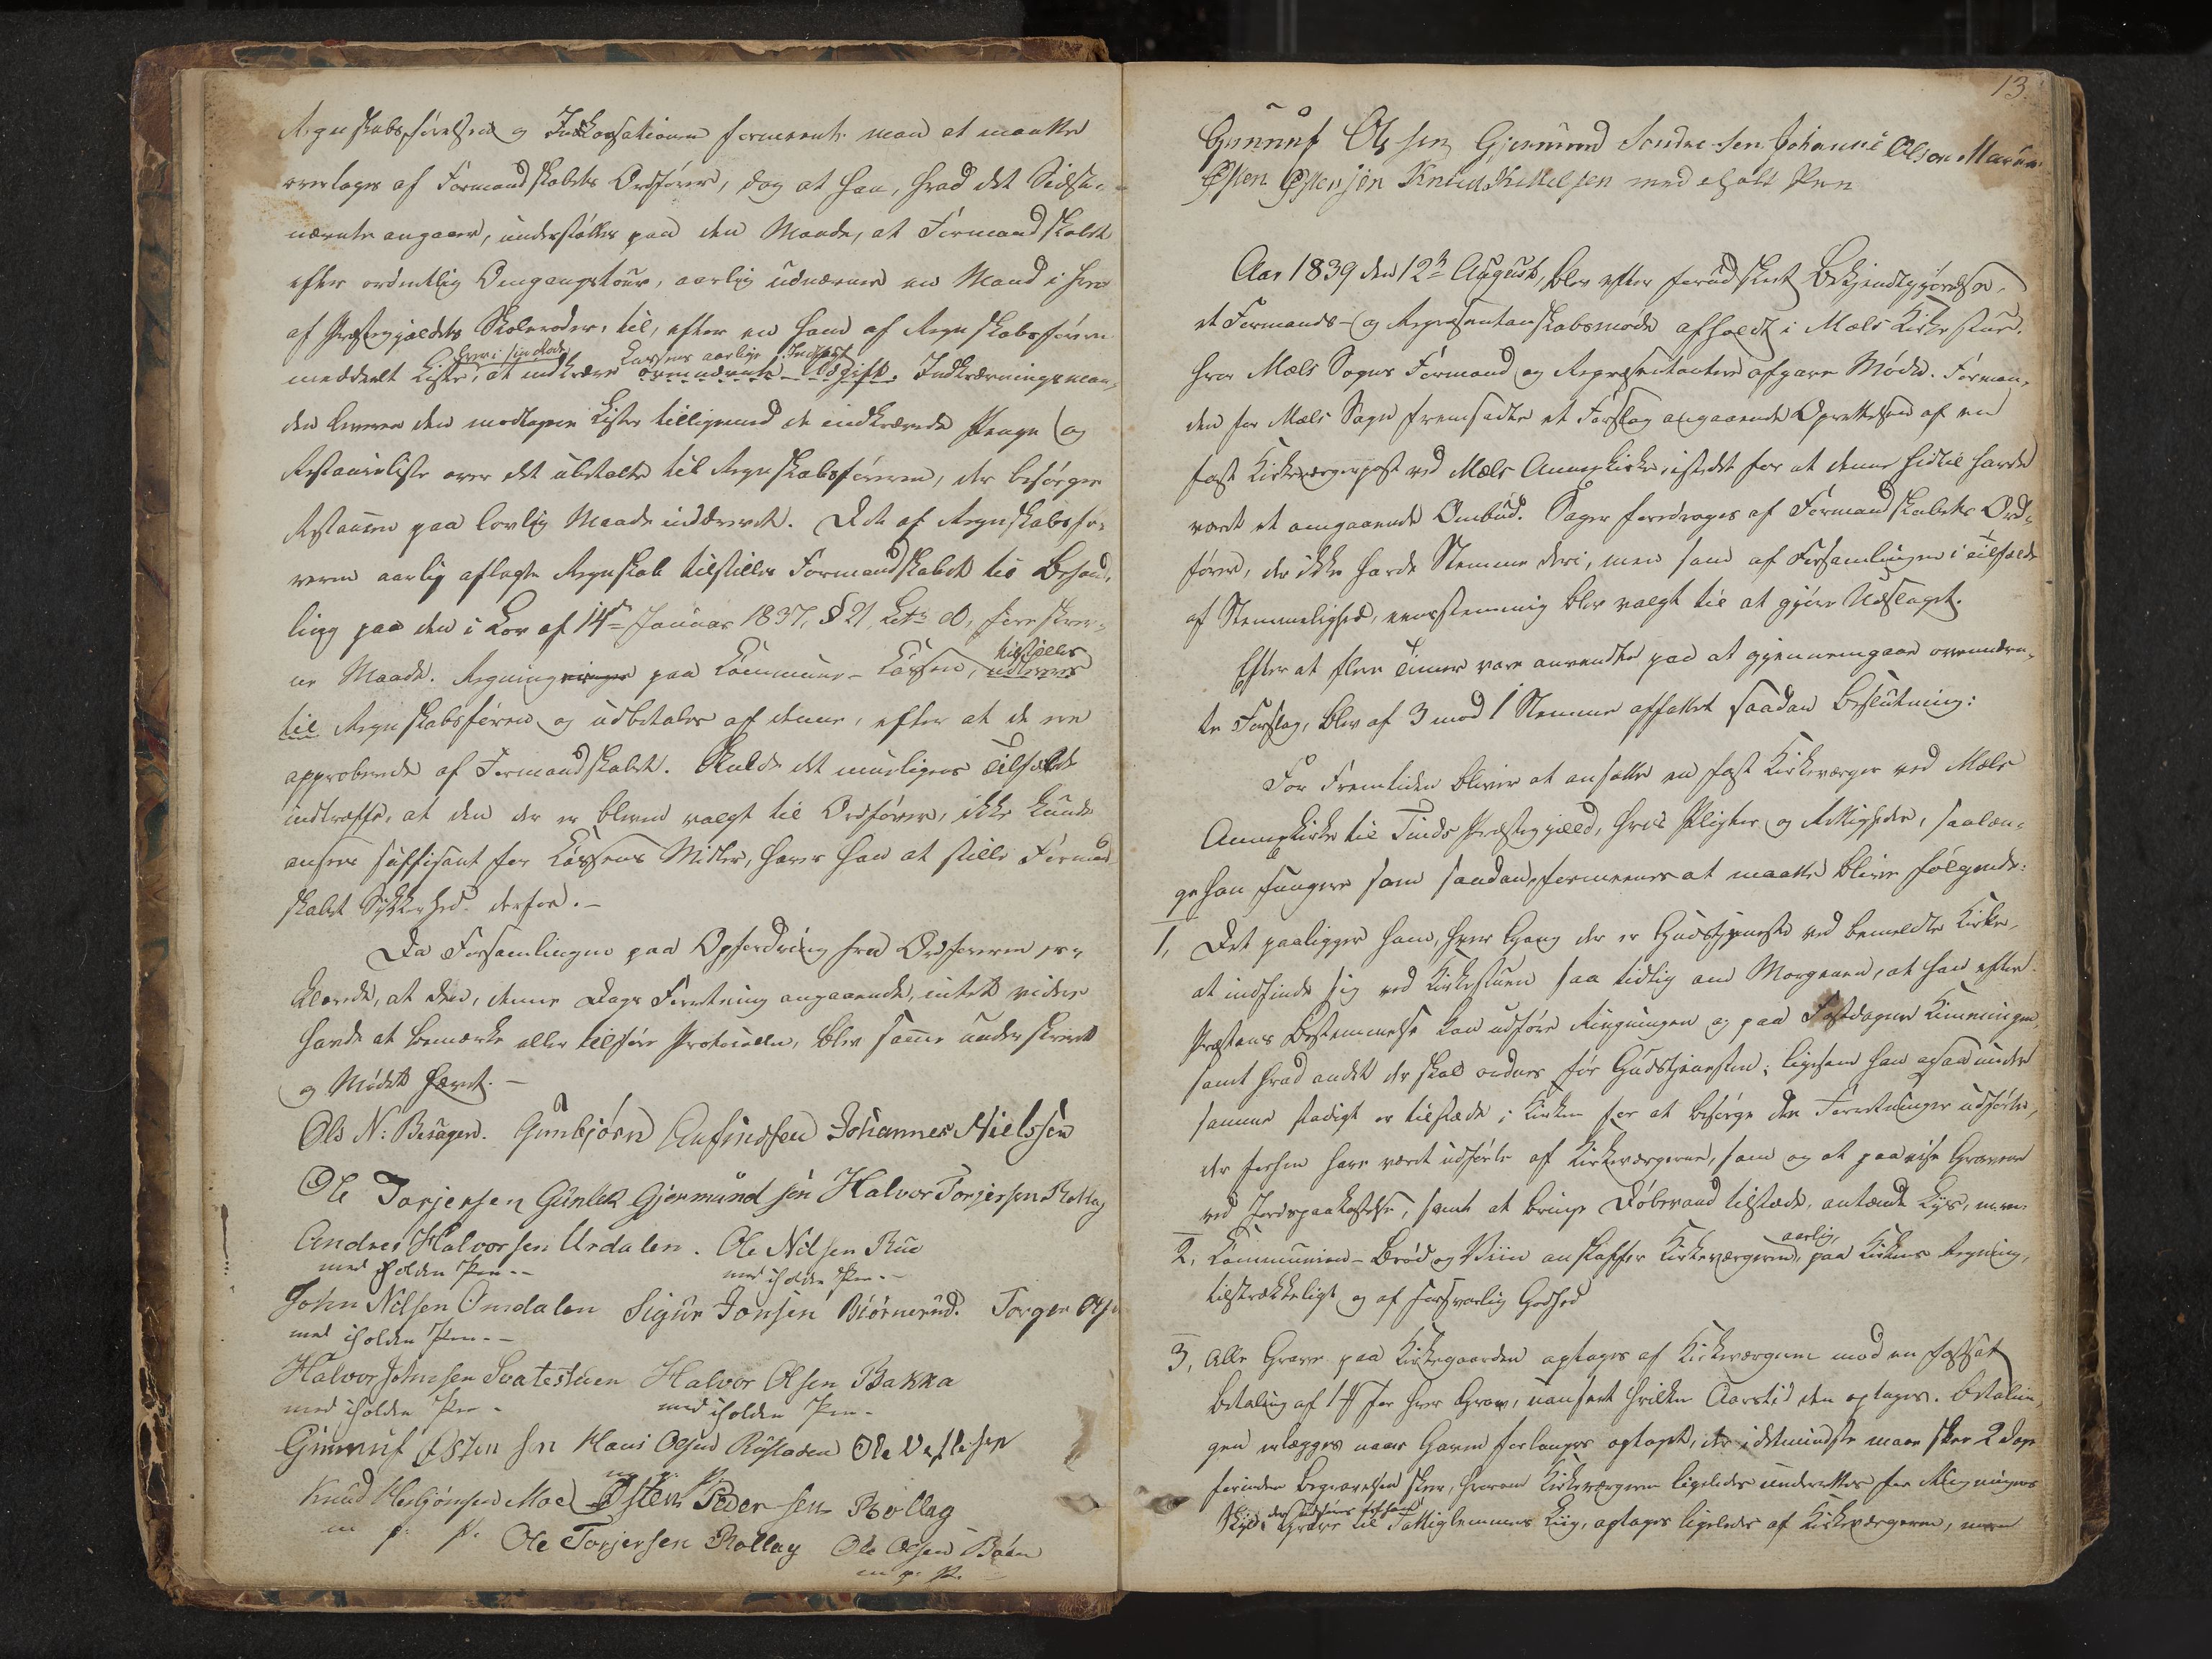 Regnskabsførelsen og Inkassationen formeente man at maatte
overtages af Formandskabets Ordfører, dog at han, hvad det Sidst-
nævnte angaaer, understøttes paa den Maade, at Formandskabet
efter ordentlig Omgangstour, aarlig udnævner en Mand i hver
af Præstegjældets Skoleroder, til, efter en ham af Regnskabsføreren
meddeelt Liste, hver i sin Rode, at indkræve Cassens aarlige Indtægt ovennævnte Udgift. Indkrævningsman-
den leverer den modtagne Liste tilligemed de indkrævede Penge og
Restanceliste over det ubetalte til Regnskabsføreren, der besørger
Restancen paa lovlig Maade inddrevet. Det af Regnskabsfø-
reren aarlig aflagte Regnskab tilstilles Formandskabet til Behand-
ling paa den i Lov af 14de Januar 1837, § 21, Litr. d, foreskrev-
ne Maade. Regninger paa Commune-Cassen, tilstilles udleveres
til Regnskabsføreren og udbetales af denne, efter at de ere
approberede af Formandskabet. Skulde det muligens Tilfælde
indtræffe, at den der er bleven valgt til Ordfører, ikke kunde
ansees suffisant for Cassens Midler, haver han at stille Formand-
skabet Sikkerhed derfor.-
Da Forsamlingen paa Opfordring fra Ordføreren er-
klærede, at den, denne Dags Forretning angaaende, intet videre
havde at bemærke eller tilføre Protocollen, blev samme underskrevet
og Mødet hævet.-
Ole N: Besagen. Gunbjørn Anfindsen Johannes Nielssen
Ole Torjersen Gunlek Gjermundsøn Halvor Torjersen Rollag
Andres Halvorsen Urdalen. Ole Nilsen Rue
med iholden Pen -- med iholden Pen --
John Nilsen Omdalen Sigur Jonsen Biørnerud. Torger Ols
med iholden Pen --
Halvor Johnsen Svatestuen Halvor Olsen Bakka
med iholden Pen - med iholden Pen -
Gunnuf Østensen Hans Olsen Rustaden Ole Vetlesen
m. p. P.
Knud Herbjønsen Moe Østen Pedersen Rollag
m p. P. Ole Torjersen Rollag Ole Olsen Bøen
m. p. P.
13.
Gunnuf Olssen Gjermund Sondresen Johannes Olson Marum
Østen Østensen Knud Kittilsen med eholt Pen
Aar 1839 den 12te August, blev efter forudskeet Bekjendtgjørelse,
et Formands- og Repræsentantskabsmøde afholdt i Mæls Kirkestue,
hvor Mæls Sogns Formænd og Repræsentantere afgave Møde. Forman-
den for Mæls Sogn fremsadte et Forslag angaaende Oprettelsen af en
fast Kirkeværgerpost ved Mæls Annexkirke, istedet for at denne hidtil havde
været et omgaaende Ombud. Sagen foredroges af Formandskabets Ord-
fører, der ikke havde Stemme deri, men som af Forsamlingen i Tilfælde
af Stemmelighed, eenstemmig blev valgt til at gjøre Udslaget.
Efter at flere Timer vare anvendte paa at gjennemgaae ovennævn-
te Forslag, blev af 3 mod 1 Stemme affattet saadan Beslutning:
For Fremtiden bliver at ansætte en fast Kirkeværger ved Mæls
Annexkirke til Tinds Præstegjæld, hvis Pligter og Rettigheder, saalæn-
ge han fungerer som saadan, formeenes at maatte blive følgende:
1, Det paaligger ham, hver Gang der er Gudstjeneste ved bemeldte Kirke,
at indfinde sig ved Kirkestuen saa tidlig om Morgenen, at han efter
Præstens Bestemmelse kan udføre Ringningen og paa Festdagene Kimningen,
samt hvad andet der skal ordnes før Gudstjenesten; ligesom han ogsaa under
samme stadigt er tilstæde i Kirken for at besørge de Forretninger udførte,
der forhen have været udførte af Kirkeværgerne, som og at paavise Gravene
ved Jordspaakastelse, samt at bringe Døbevand tilstæde, antænde Lys, m.m.
2, Communion-Brød og Viin anskaffer Kirkeværgeren, aarlig, paa Kirkens Regning,
tilstrækkeligt og af forsvarlig Godhed
3, Alle Grave paa Kirkegaarden optages af Kirkeværgeren mod en fastsat
Betaling af 1 ß for hver Grav, uanseet hvilken Aarstid den optages. Betalin-
gen erlægges naar Graven forlanges optaget, der i det mindste maae skee 2 Dage
førinden Begravelsen skeer, hvorom Kirkeværgeren ligeledes underrettes for Ringningens
Skyld, der udføres af ham. Grave til Fattiglemmers Liig, optages ligeledes af Kirkeværgeren, men